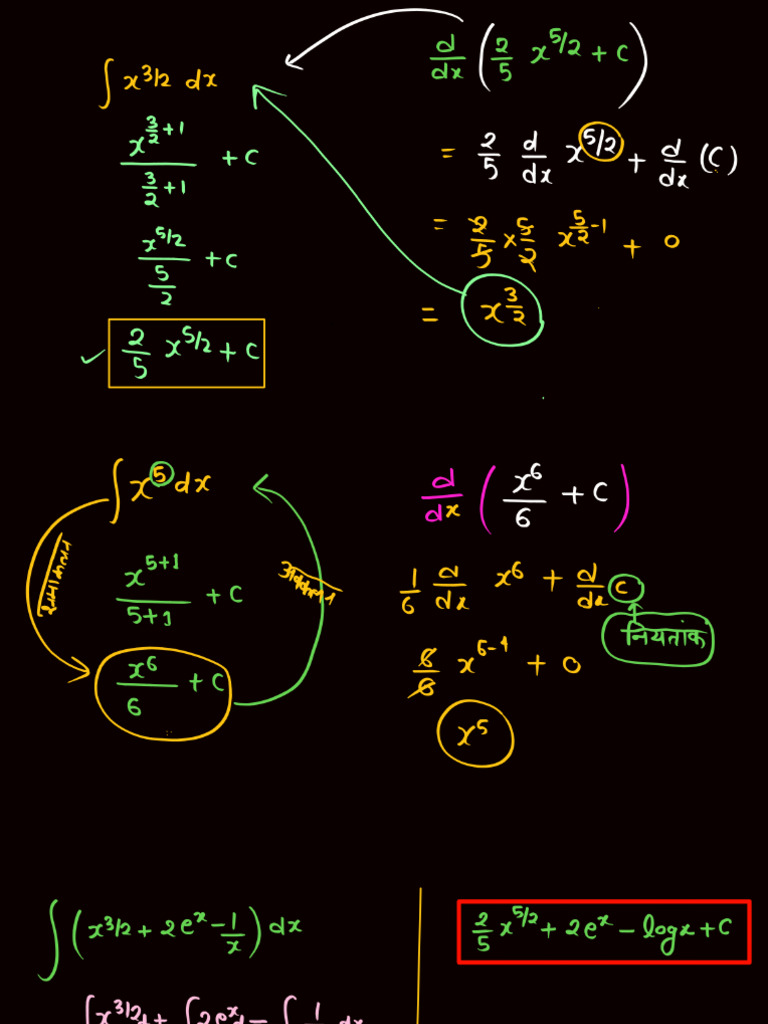 ∫ x^3/2 dx
x^(3/2+1) / (3/2+1) + C
x^5/2 / (5/2) + C
2/5 x^5/2 + C
d/dx (2/5 x^5/2 + C)
= 2/5 d/dx x^5/2 + d/dx (C)
= 2/5 × 5/2 x^(5/2-1) + 0
= x^3/2
∫ x^5 dx
x^(5+1) / (5+1) + C
x^6 / 6 + C
समाकलन
अवकलन
d/dx (x^6/6 + C)
1/6 d/dx x^6 + d/dx C
नियतांक
6/6 x^(6-1) + 0
x^5
∫ (x^3/2 + 2e^x - 1/x) dx
2/5 x^5/2 + 2e^x - logx + C